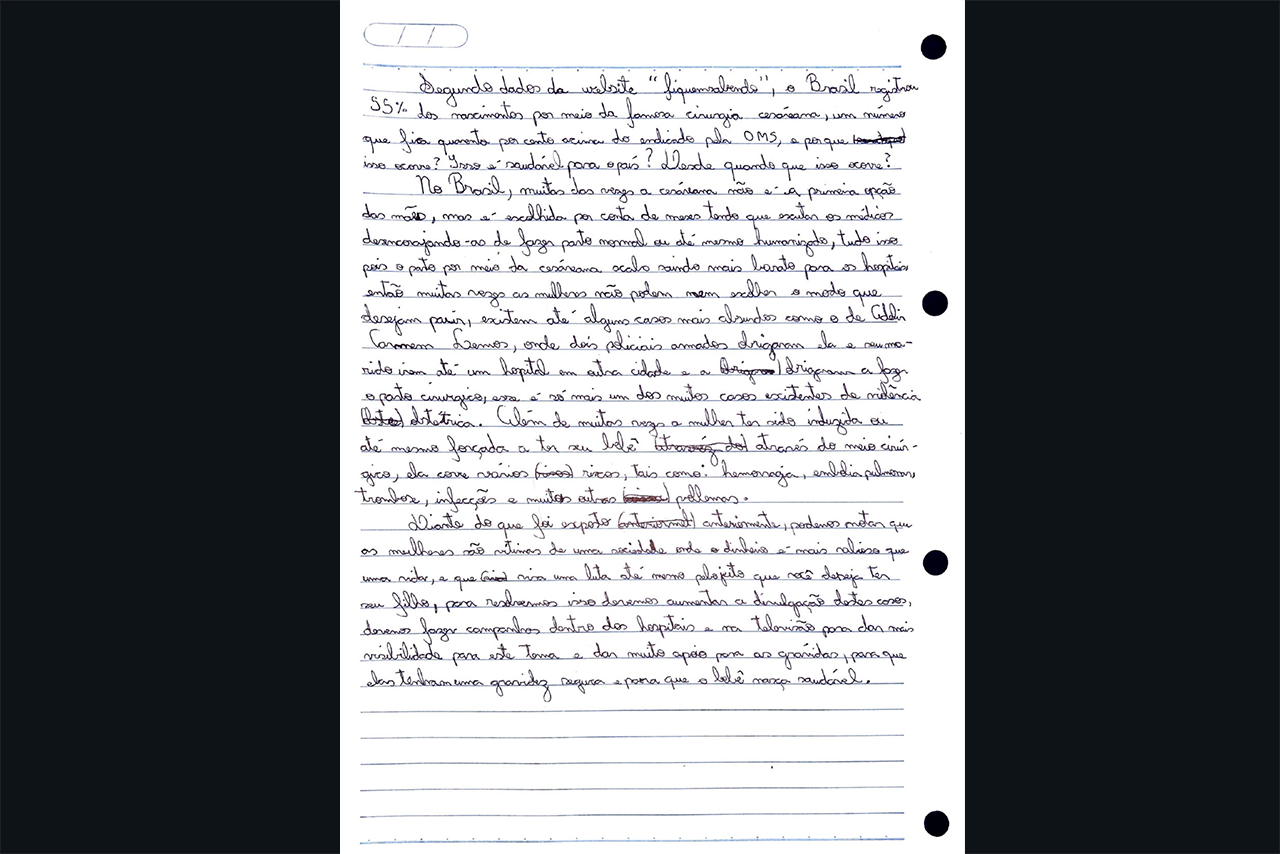 Segundo dados da website "fiquemsabendo", o Brasil registrou
55% dos nascimentos por meio da famosa cirurgia cesáreana, um número
que fica quarenta por cento acima do indicado pela OMS, e por que
isso ocorre? Isso é saudável para o país? Desde quando que isso ocorre?
No Brasil, muitas das vezes a cesáreana não é a primeira opção
das mães, mas é escolhida por conta de meses tendo que escutar os médicos
desencorajando-as de fazer parto normal ou até mesmo humanizado, tudo isso
pois o parto por meio da cesáreana acaba saindo mais barato para os hopitais
então muitas vezes as mulheres não podem nem escolher o modo que
desejam parir, existem até alguns casos mais absurdos como o de Adelir
Carmem Lemos, onde dois policiais armados obrigaram ela e seu ma-
rido irem até um hopital em outra cidade e a obrigaram a fazer
o parto cirúrgico, esse é só mais um dos muitos casos existentes de violência
obstétrica. Além de muitas vezes a mulher ter sido induzida ou
até mesmo forçada a ter seu bebê através do meio cirúr-
gico, ela corre vários riscos, tais como: hemorragia, embolia pulmonar,
trombose, infecções e muitos outros problemas.
Diante do que foi exposto anteriormente, podemos notar que
as mulheres são vítimas de uma sociedade onde o dinheiro é mais valioso que
uma vida, e que vira uma luta até mesmo pelo jeito que você deseja ter
seu filho, para resolvermos isso devemos aumentar a divulgação destes casos,
devemos fazer campanhas dentro dos hospitais e na televisão para dar mais
visibilidade para este tema e dar muito apoio para as grávidas, para que
elas tenham uma gravidez segura e para que o bebê nasça saudável.